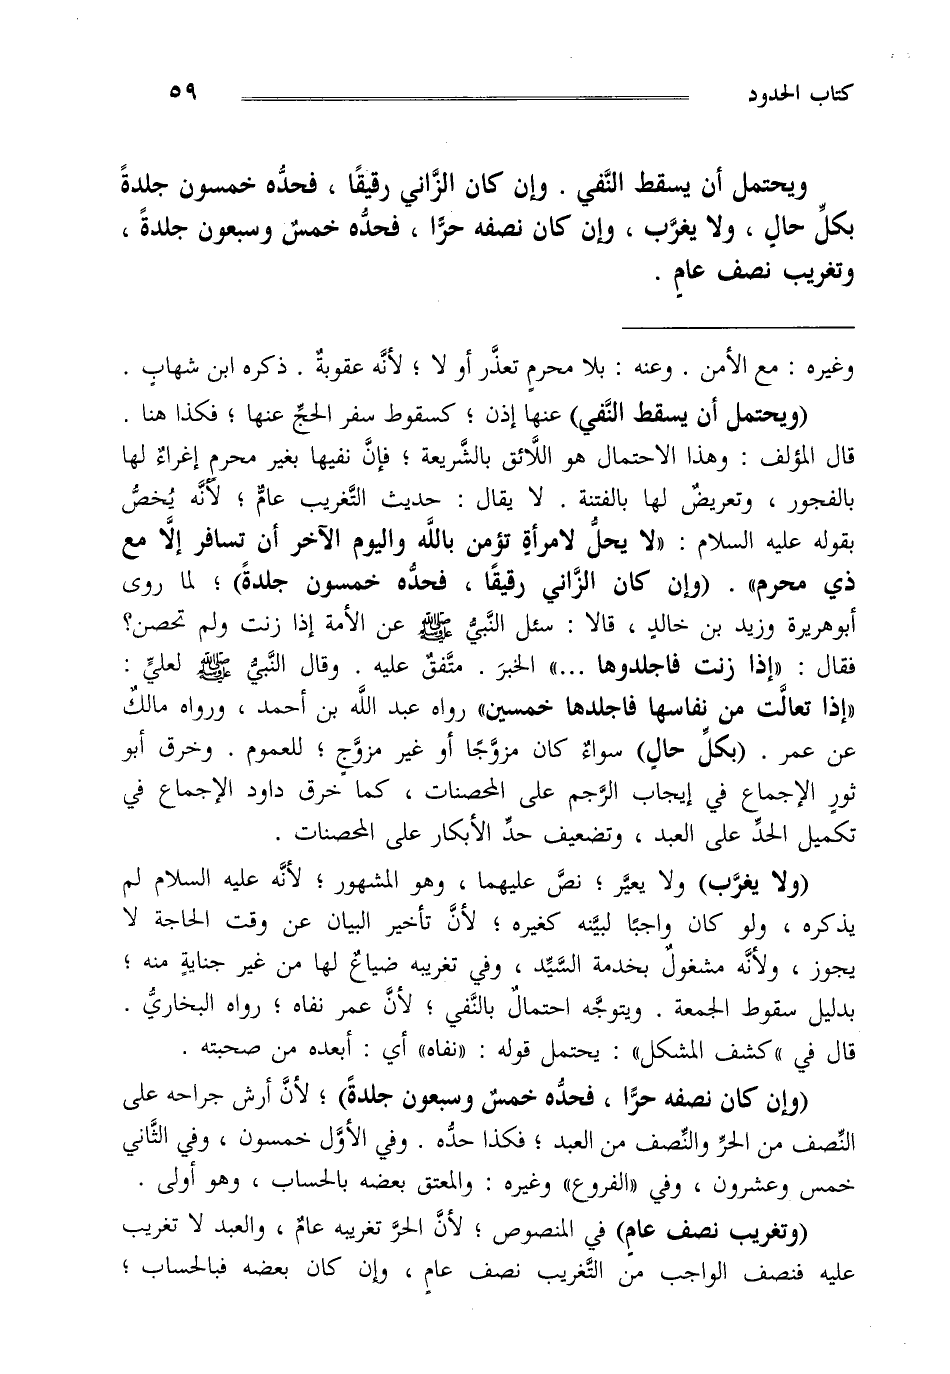 كتاب الحدود ٥٩
ويحتمل أن يسقط النَّفي . وإن كان الزَّاني رقيقًا ، فحدُّه خمسون جلدةً
بكلِّ حالٍ ، ولا يغرَّب ، وإن كان نصفه حرًّا ، فحدُّه خمسٌ وسبعون جلدةً ،
وتغريب نصف عامٍ .
وغيره : مع الأمن . وعنه : بلا محرمٍ تعذَّر أو لا ؛ لأنَّه عقوبةٌ . ذكره ابن شهابٍ .
(ويحتمل أن يسقط النَّفي) عنها إذن ؛ كسقوط سفر الحجِّ عنها ؛ فكذا هنا .
قال المؤلف : وهذا الاحتمال هو اللَّائق بالشَّريعة ؛ فإنَّ نفيها بغير محرمٍ إغراءٌ لها
بالفجور ، وتعريضٌ لها بالفتنة . لا يقال : حديث التَّغريب عامٌّ ؛ لأنَّه يُخصُّ
بقوله عليه السلام : «لا يحلُّ لامرأةٍ تؤمن باللَّه واليوم الآخر أن تسافر إلَّا مع
ذي محرم» . (وإن كان الزَّاني رقيقًا ، فحدُّه خمسون جلدةً) ؛ لما روى
أبوهريرة وزيد بن خالدٍ ، قالا : سئل النَّبيُّ ﷺ عن الأمة إذا زنت ولم تحصن؟
فقال : «إذا زنت فاجلدوها ...» الخبرَ . متَّفقٌ عليه . وقال النَّبيُّ ﷺ لعليٍّ :
«إذا تعالَّت من نفاسها فاجلدها خمسين» رواه عبد اللَّه بن أحمد ، ورواه مالكٌ
عن عمر . (بكلِّ حالٍ) سواءٌ كان مزوَّجًا أو غير مزوَّجٍ ؛ للعموم . وخرق أبو
ثورٍ الإجماع في إيجاب الرَّجم على المحصنات ، كما خرق داود الإجماع في
تكميل الحدِّ على العبد ، وتضعيف حدِّ الأبكار على المحصنات .
(ولا يغرَّب) ولا يعيَّر ؛ نصَّ عليهما ، وهو المشهور ؛ لأنَّه عليه السلام لم
يذكره ، ولو كان واجبًا لبيَّنه كغيره ؛ لأنَّ تأخير البيان عن وقت الحاجة لا
يجوز ، ولأنَّه مشغولٌ بخدمة السَّيِّد ، وفي تغريبه ضياعٌ لها من غير جنايةٍ منه ؛
بدليل سقوط الجمعة . ويتوجَّه احتمالٌ بالنَّفي ؛ لأنَّ عمر نفاه ؛ رواه البخاريُّ .
قال في «كشف المشكل» : يحتمل قوله : «نفاه» أي : أبعده من صحبته .
(وإن كان نصفه حرًّا ، فحدُّه خمسٌ وسبعون جلدةً) ؛ لأنَّ أرش جراحه على
النِّصف من الحرِّ والنِّصف من العبد ؛ فكذا حدُّه . وفي الأوَّل خمسون ، وفي الثَّاني
خمس وعشرون ، وفي «الفروع» وغيره : والمعتق بعضه بالحساب ، وهو أولى .
(وتغريب نصف عامٍ) في المنصوص ؛ لأنَّ الحرَّ تغريبه عامٌ ، والعبد لا تغريب
عليه فنصف الواجب من التَّغريب نصف عامٍ ، وإن كان بعضه فبالحساب ؛